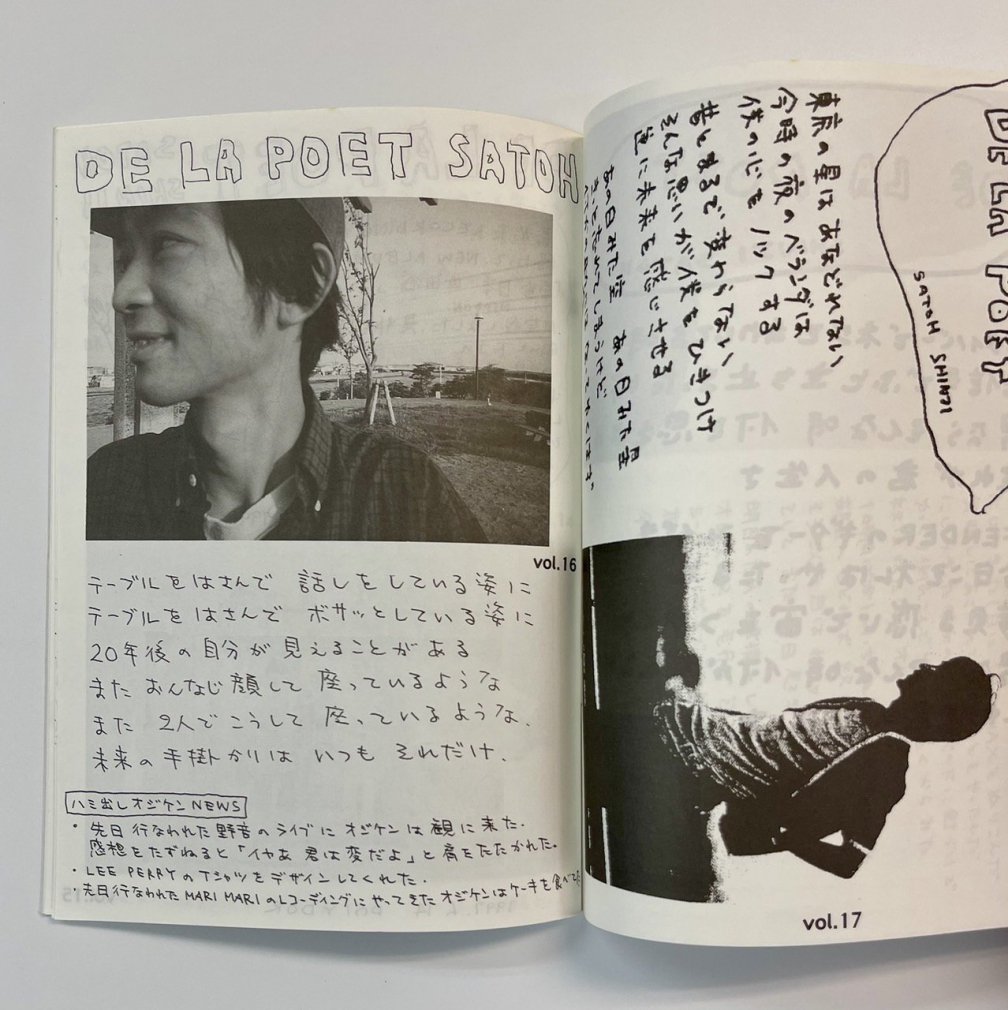 DE LA POET SATOH
vol.16
テーブルをはさんで 話しをしている姿に
テーブルをはさんで ボサッとしている姿に
20年後の自分が見えることがある
また おんなじ顔して 座っているような
また 2人でこうして 座っているような.
未来の手掛かりは いつも それだけ.
ハミ出しオジケンNEWS
・先日行なわれた野音のライブに オジケンは観に来た.
感想をたずねると「イヤあ 君は変だよ」と肩をたたかれた.
・LEE PERRYのTシャツをデザインしてくれた.
・先日行なわれたMARI MARIのレコーディングにやってきたオジケンはケーキを食べて
DE LA POET
SATOH SHINJI
東京の星はあなどれない
今時の夜のべランダは
僕の心も ノックする
昔とまるで変わらない
そんな思いが僕をひきつけ
逆に未来を感じさせる
あの日みた空 あの日みた星
vol.17